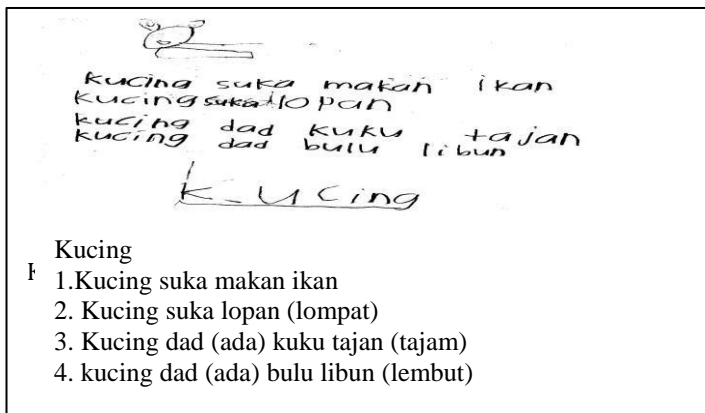 kucing suka makan ikan
kucing suka lopan
kucing dad kuku tajan
kucing dad bulu libun
kucing
Kucing
1.Kucing suka makan ikan
2. Kucing suka lopan (lompat)
3. Kucing dad (ada) kuku tajan (tajam)
4. kucing dad (ada) bulu libun (lembut)